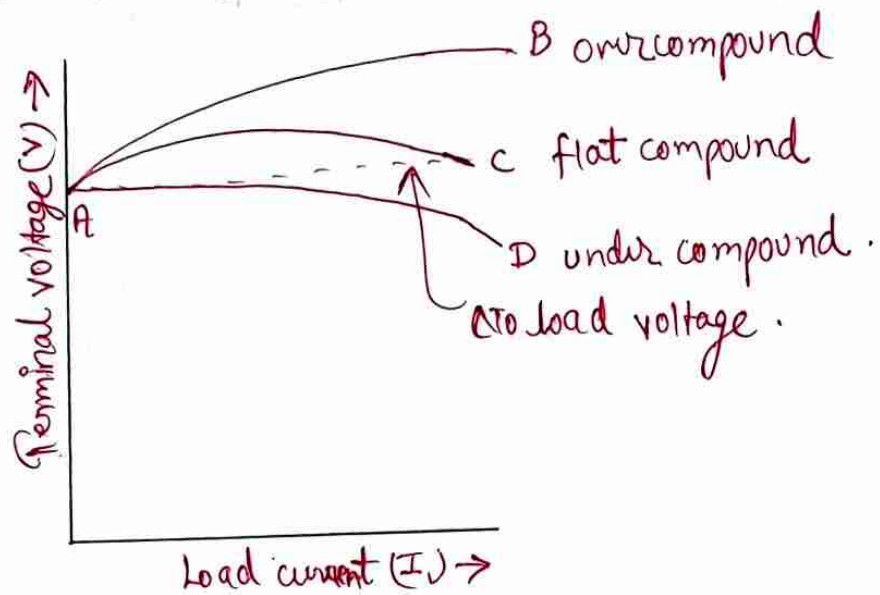 B overcompound
C flat compound
A
D under compound.
No load voltage.
Terminal voltage (V) →
Load current (I) →